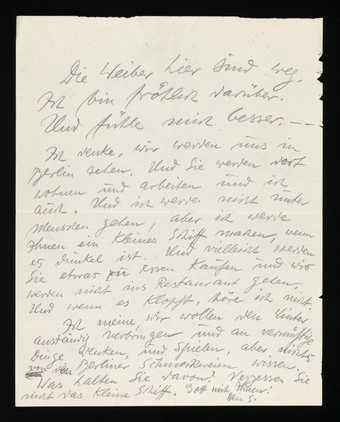 Die Weiber hier sind weg.
Ich bin fröhlich darüber.
Und fühle mich besser. — —
Ich denke, wir werden uns in
Berlin sehen. Und Sie werden dort
wohnen und arbeiten und ich
auch. Und ich werde nicht unter
Menschen gehen, aber ich werde
Ihnen ein kleines Schiff machen, wenn
es dunkel ist. Und vielleicht werden
Sie etwas zu essen kaufen und wir
werden nicht ins Restaurant gehen.
Und wenn es klopft, höre ich nicht.
Ich meine, wir wollen den Winter
anständig verbringen und an vernünftige
Dinge denken, und spielen, aber nichts
von den Berliner wissen.
Was halten Sie davon? Vergessen Sie
nicht das kleine Schiff. Gott mit Ihnen!